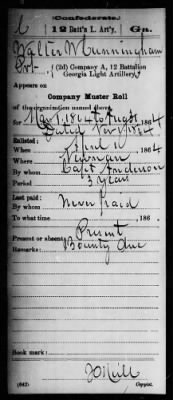 Confederate.
C 12 Batt'n L. Art'y. Ga.
Walter W Cunningham
Pvt., (2d) Company A, 12 Battalion
Georgia Light Artillery.
Appears on
Company Muster Roll
of the organization named above,
for May 1, 1864 to Augt , 1864
Dated Nov 1, 1864
Enlisted:
When April 10, 1864
Where
By whom Capt Anderson
Period 3 years
Last paid:
By whom Never paid
To what time , 186 .
Present or absent Present
Remarks: Bounty due
Book mark:
(642) Copyist.